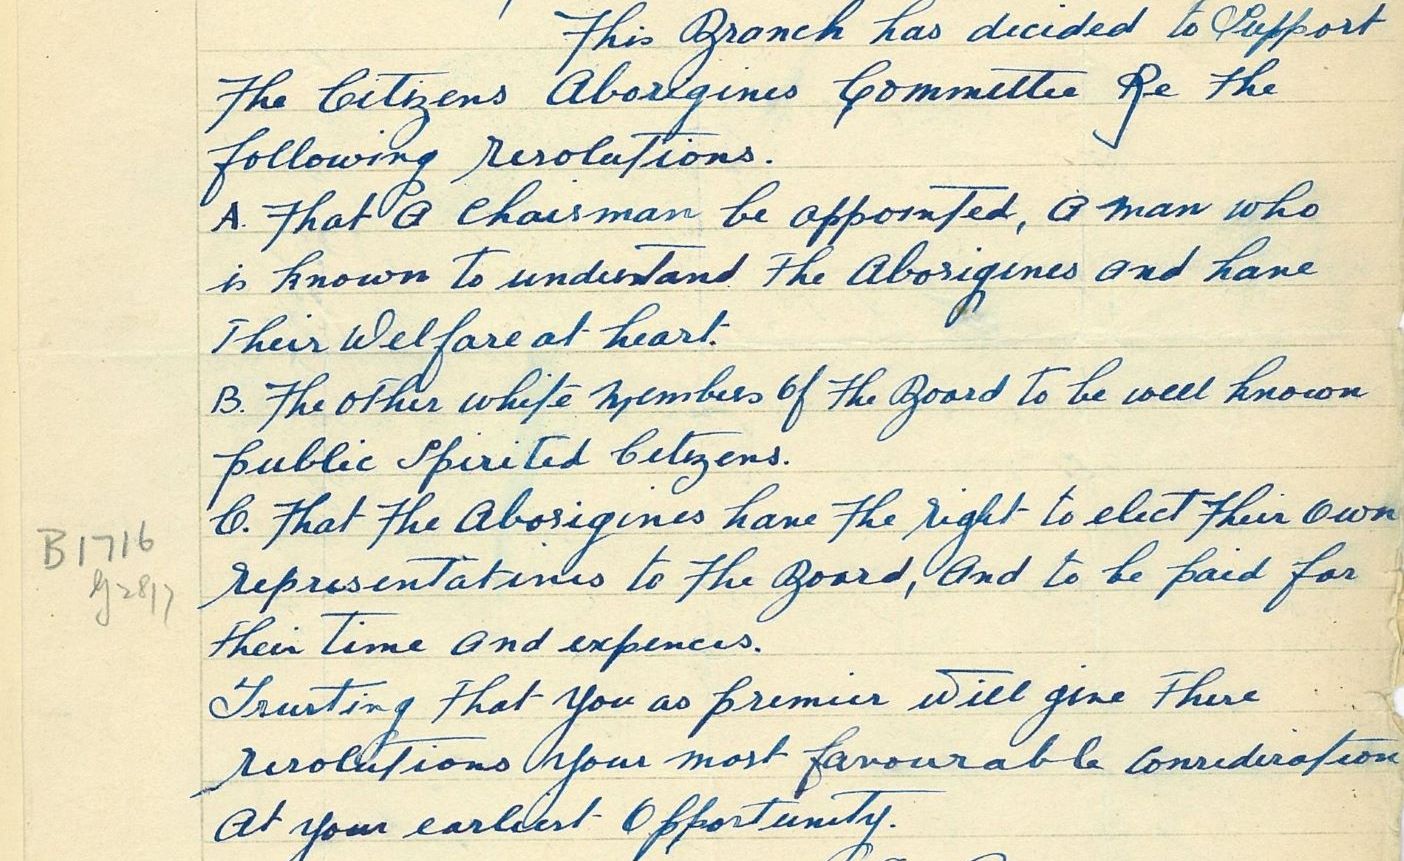 This Branch has decided to Support
The Citizens Aborigines Committee Re the
following resolutions.
A. That A Chairman be appointed, A man who
is known to understand the Aborigines and have
Their Welfare at heart.
B. The other white Members Of The Board to be well known
public Spirited Citizens.
C. That The Aborigines have The right to elect Their Own
representatives to The Board, And to be paid for
their time and expences.
Trusting That You as premier Will give These
resolutions Your most favourable Consideration
At your earliest Opportunity.
B1716